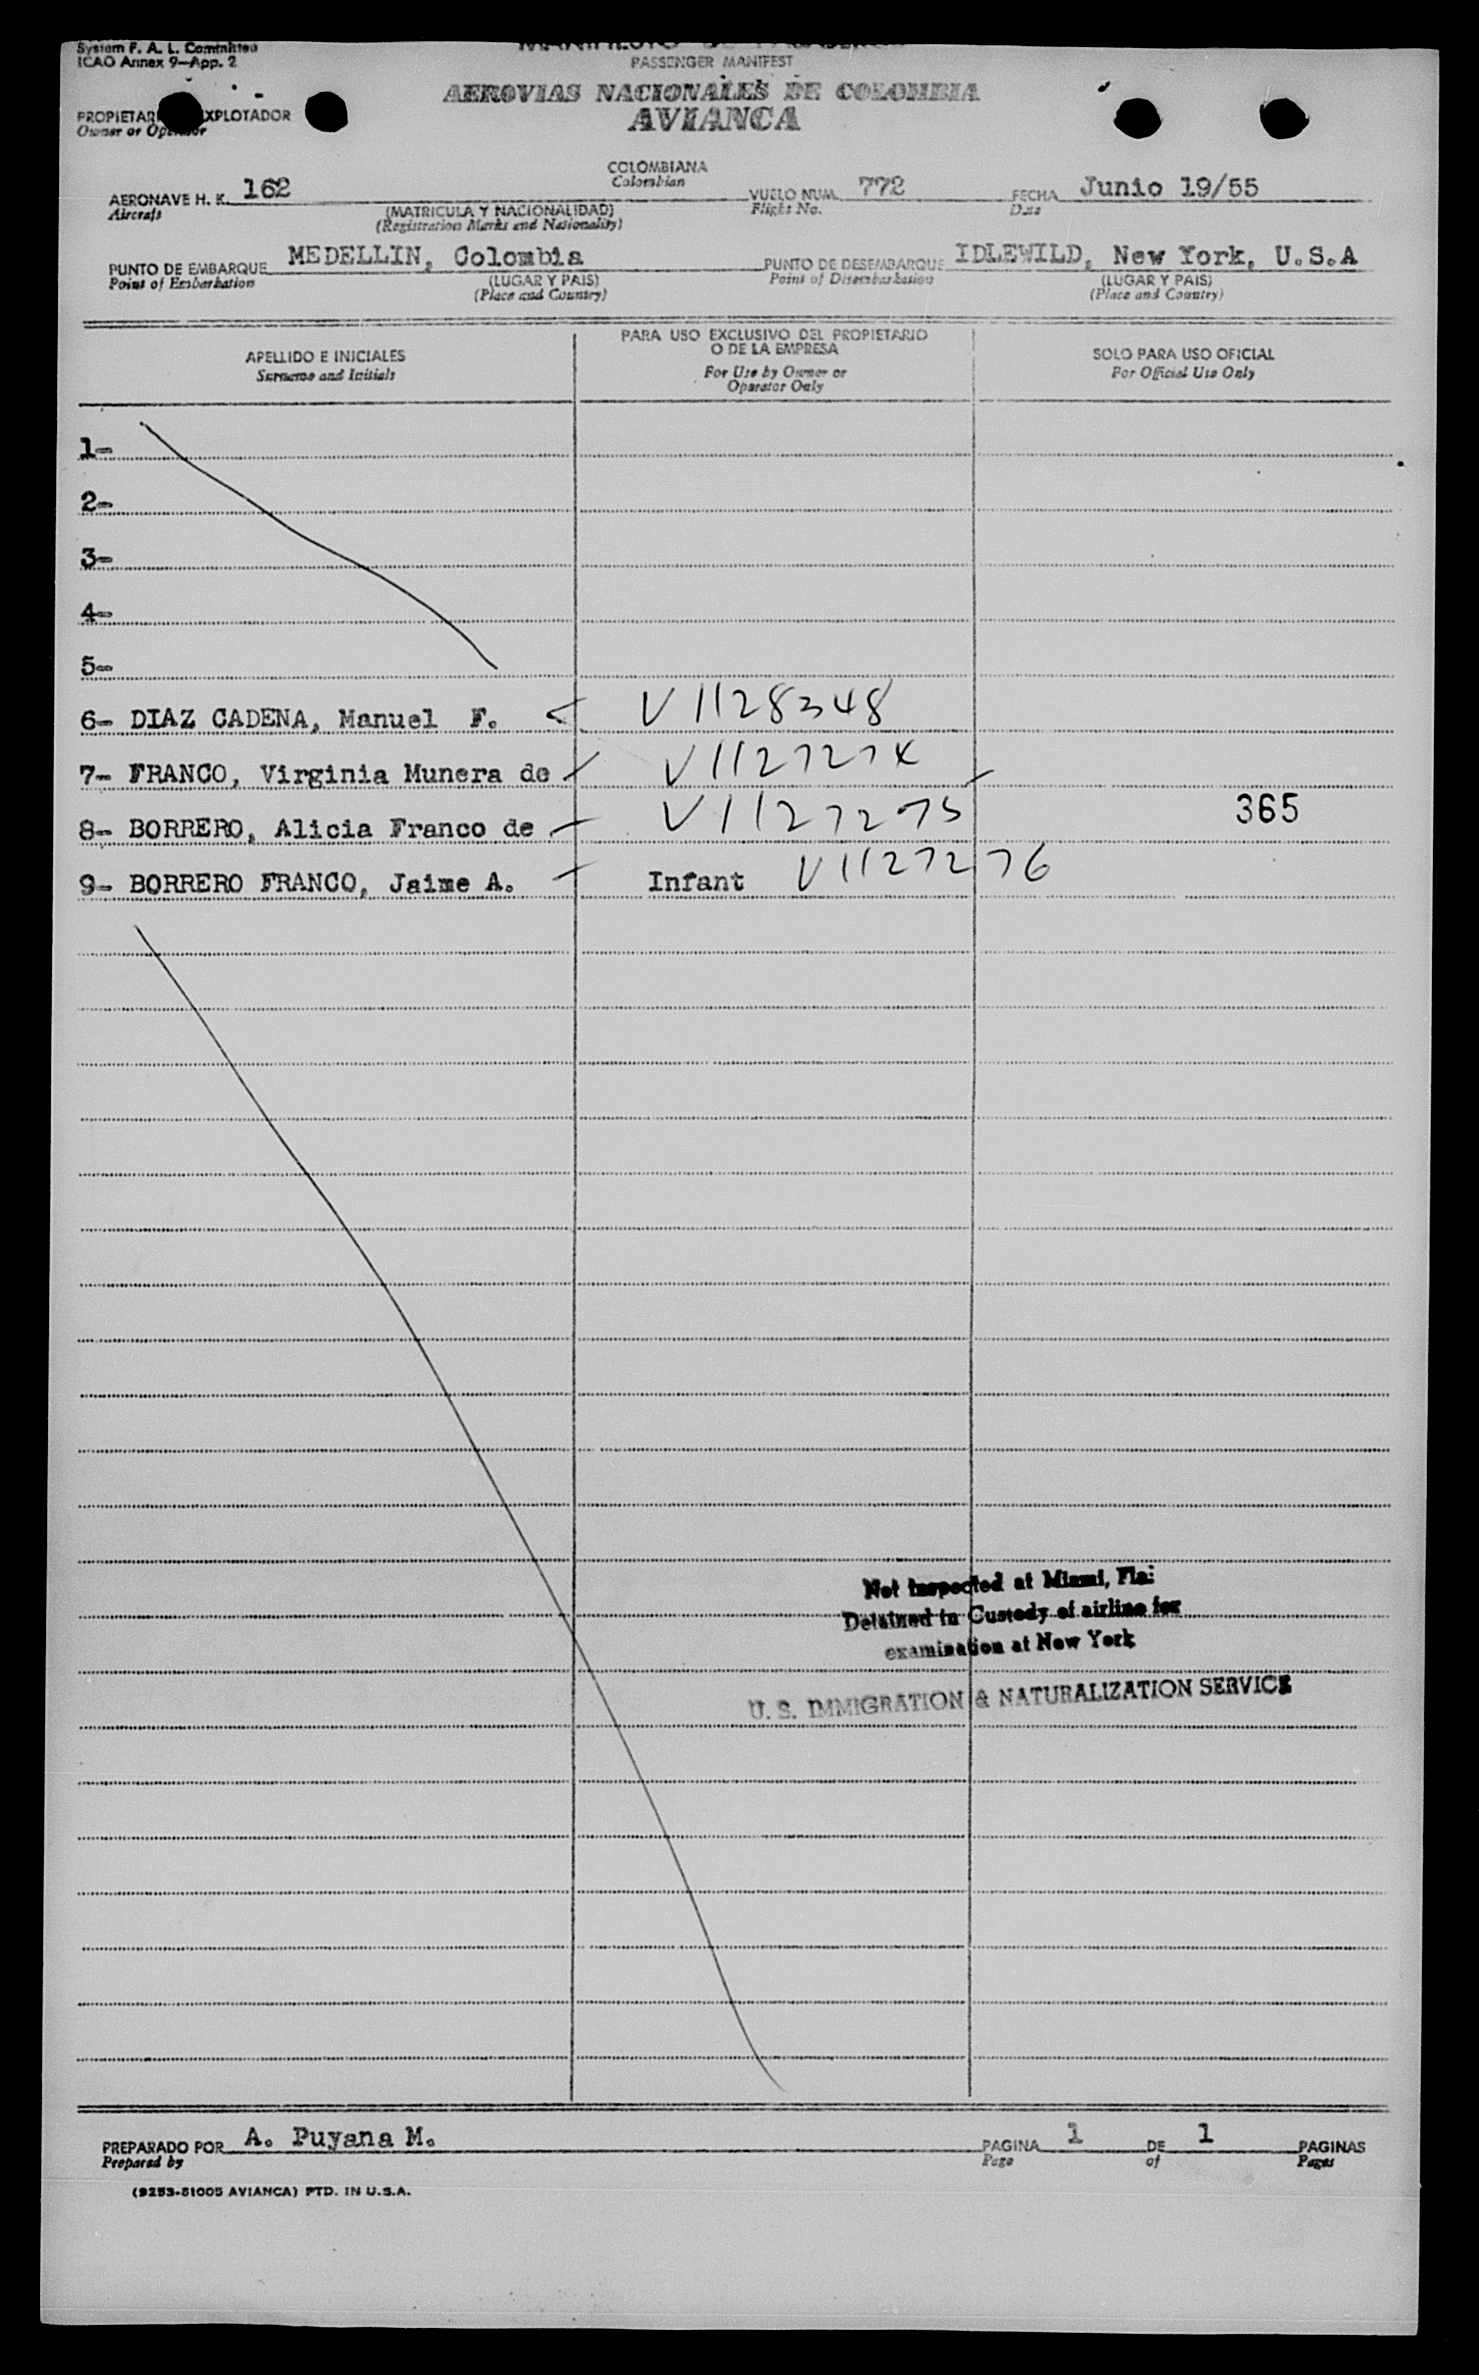 System F. A. L. Committee
ICAO Annex 9—App. 2
PASSENGER MANIFEST
AEROVIAS NACIONALES DE COLOMBIA
AVIANCA
PROPIETARI XPLOTADOR
Owner or Operator
COLOMBIANA
Colombian
AERONAVE H. K. 162
Aircraft
(MATRICULA Y NACIONALIDAD)
(Registration Marks and Nationality)
VUELO NUM. 772
Flight No.
FECHA Junio 19/55
Date
PUNTO DE EMBARQUE MEDELLIN, Colombia
Point of Embarkation
(LUGAR Y PAIS)
(Place and Country)
PUNTO DE DESEMBARQUE IDLEWILD, New York, U.S.A
Point of Disembarkation
(LUGAR Y PAIS)
(Place and Country)
APELLIDO E INICIALES
Surname and Initials
PARA USO EXCLUSIVO DEL PROPIETARIO
O DE LA EMPRESA
For Use by Owner or
Operator Only
SOLO PARA USO OFICIAL
For Official Use Only
1-
2-
3-
4-
5-
6- DIAZ CADENA, Manuel F. V1128348
7- FRANCO, Virginia Munera de V1127274
8- BORRERO, Alicia Franco de V1127275 365
9- BORRERO FRANCO, Jaime A. Infant V1127276
Not Inspected at Miami, Fla.
Detained in Custody of airline for
examination at New York
U. S. IMMIGRATION & NATURALIZATION SERVICE
PREPARADO POR A. Puyana M.
Prepared by
PAGINA 1 DE 1 PAGINAS
Page of Pages
(9253-51005 AVIANCA) PTD. IN U.S.A.